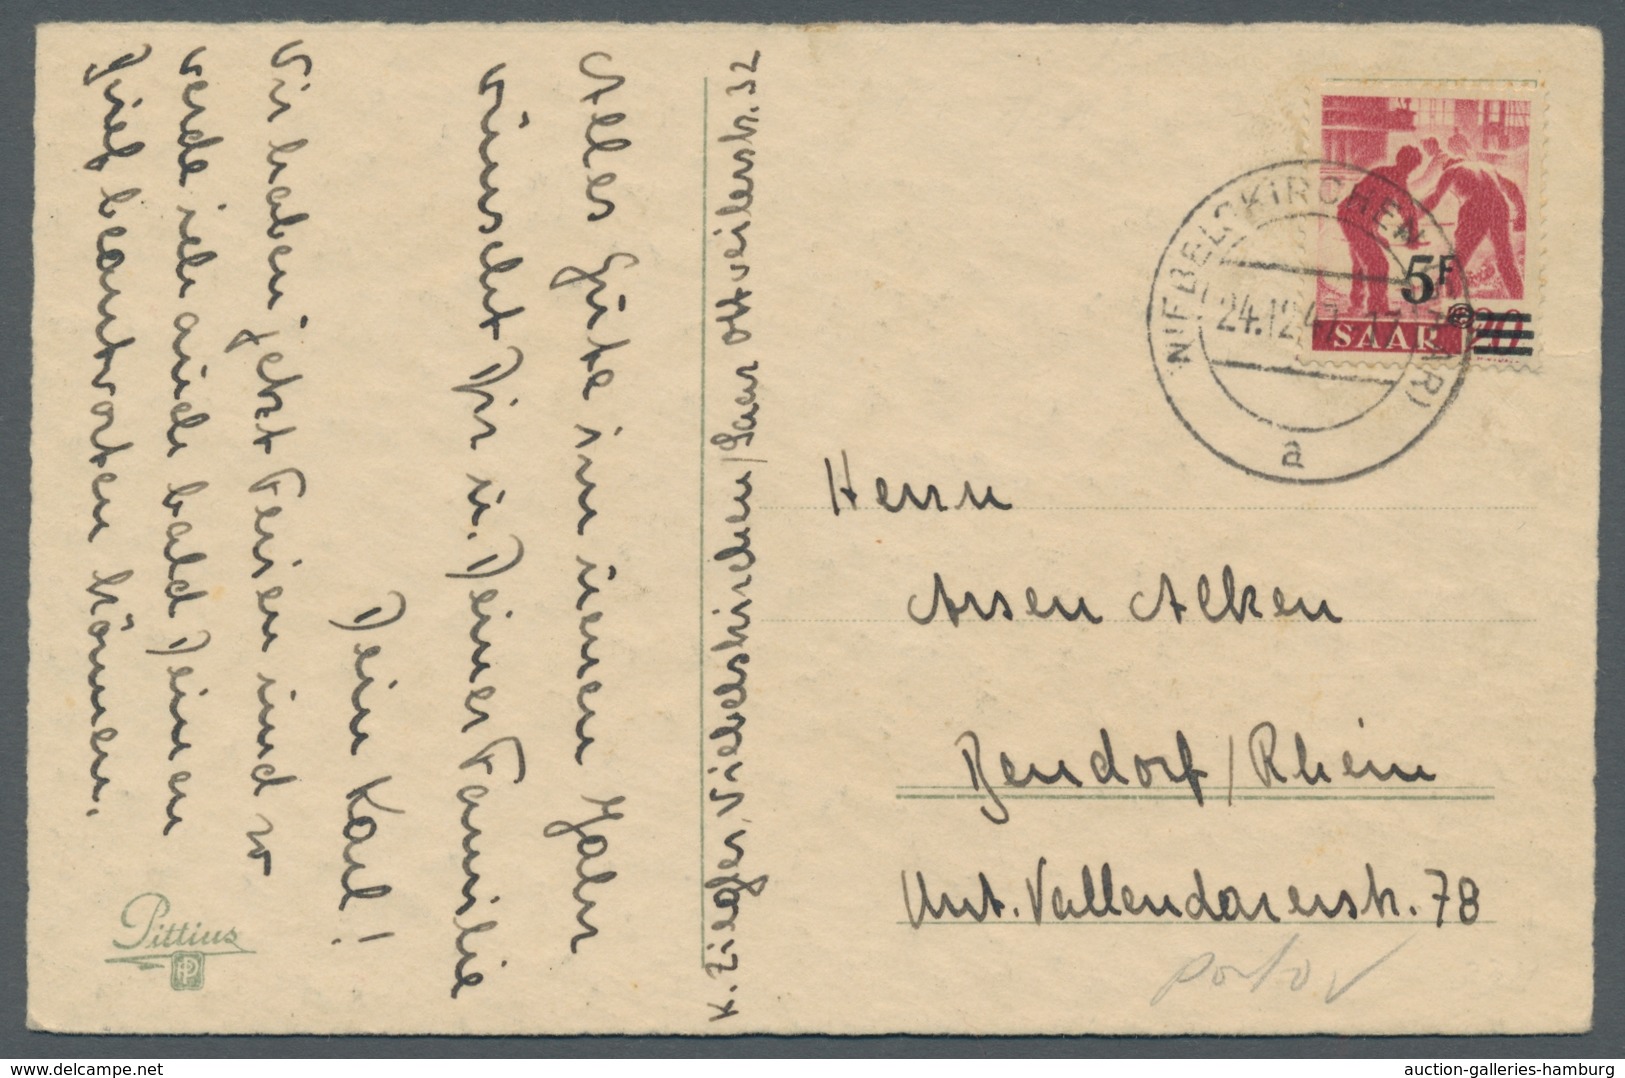 Alles Gute im neuen Jahr
wünscht Dir u. Deiner Familie
Dein Karl!
Wir haben jetzt Ferien und so
werde ich auch bald Deinen
Brief beantworten können.
Pittius
K. Zieger, Wiebelskirchen/Saar Ottweilerstr. 32
5F
SAAR 20
WIEBELSKIRCHEN (SAAR)
24.12.47
a
Herrn
Arsen Alken
Bendorf/Rhein
Unt. Vallendarerstr. 78
porto
auction-galleries-hamburg